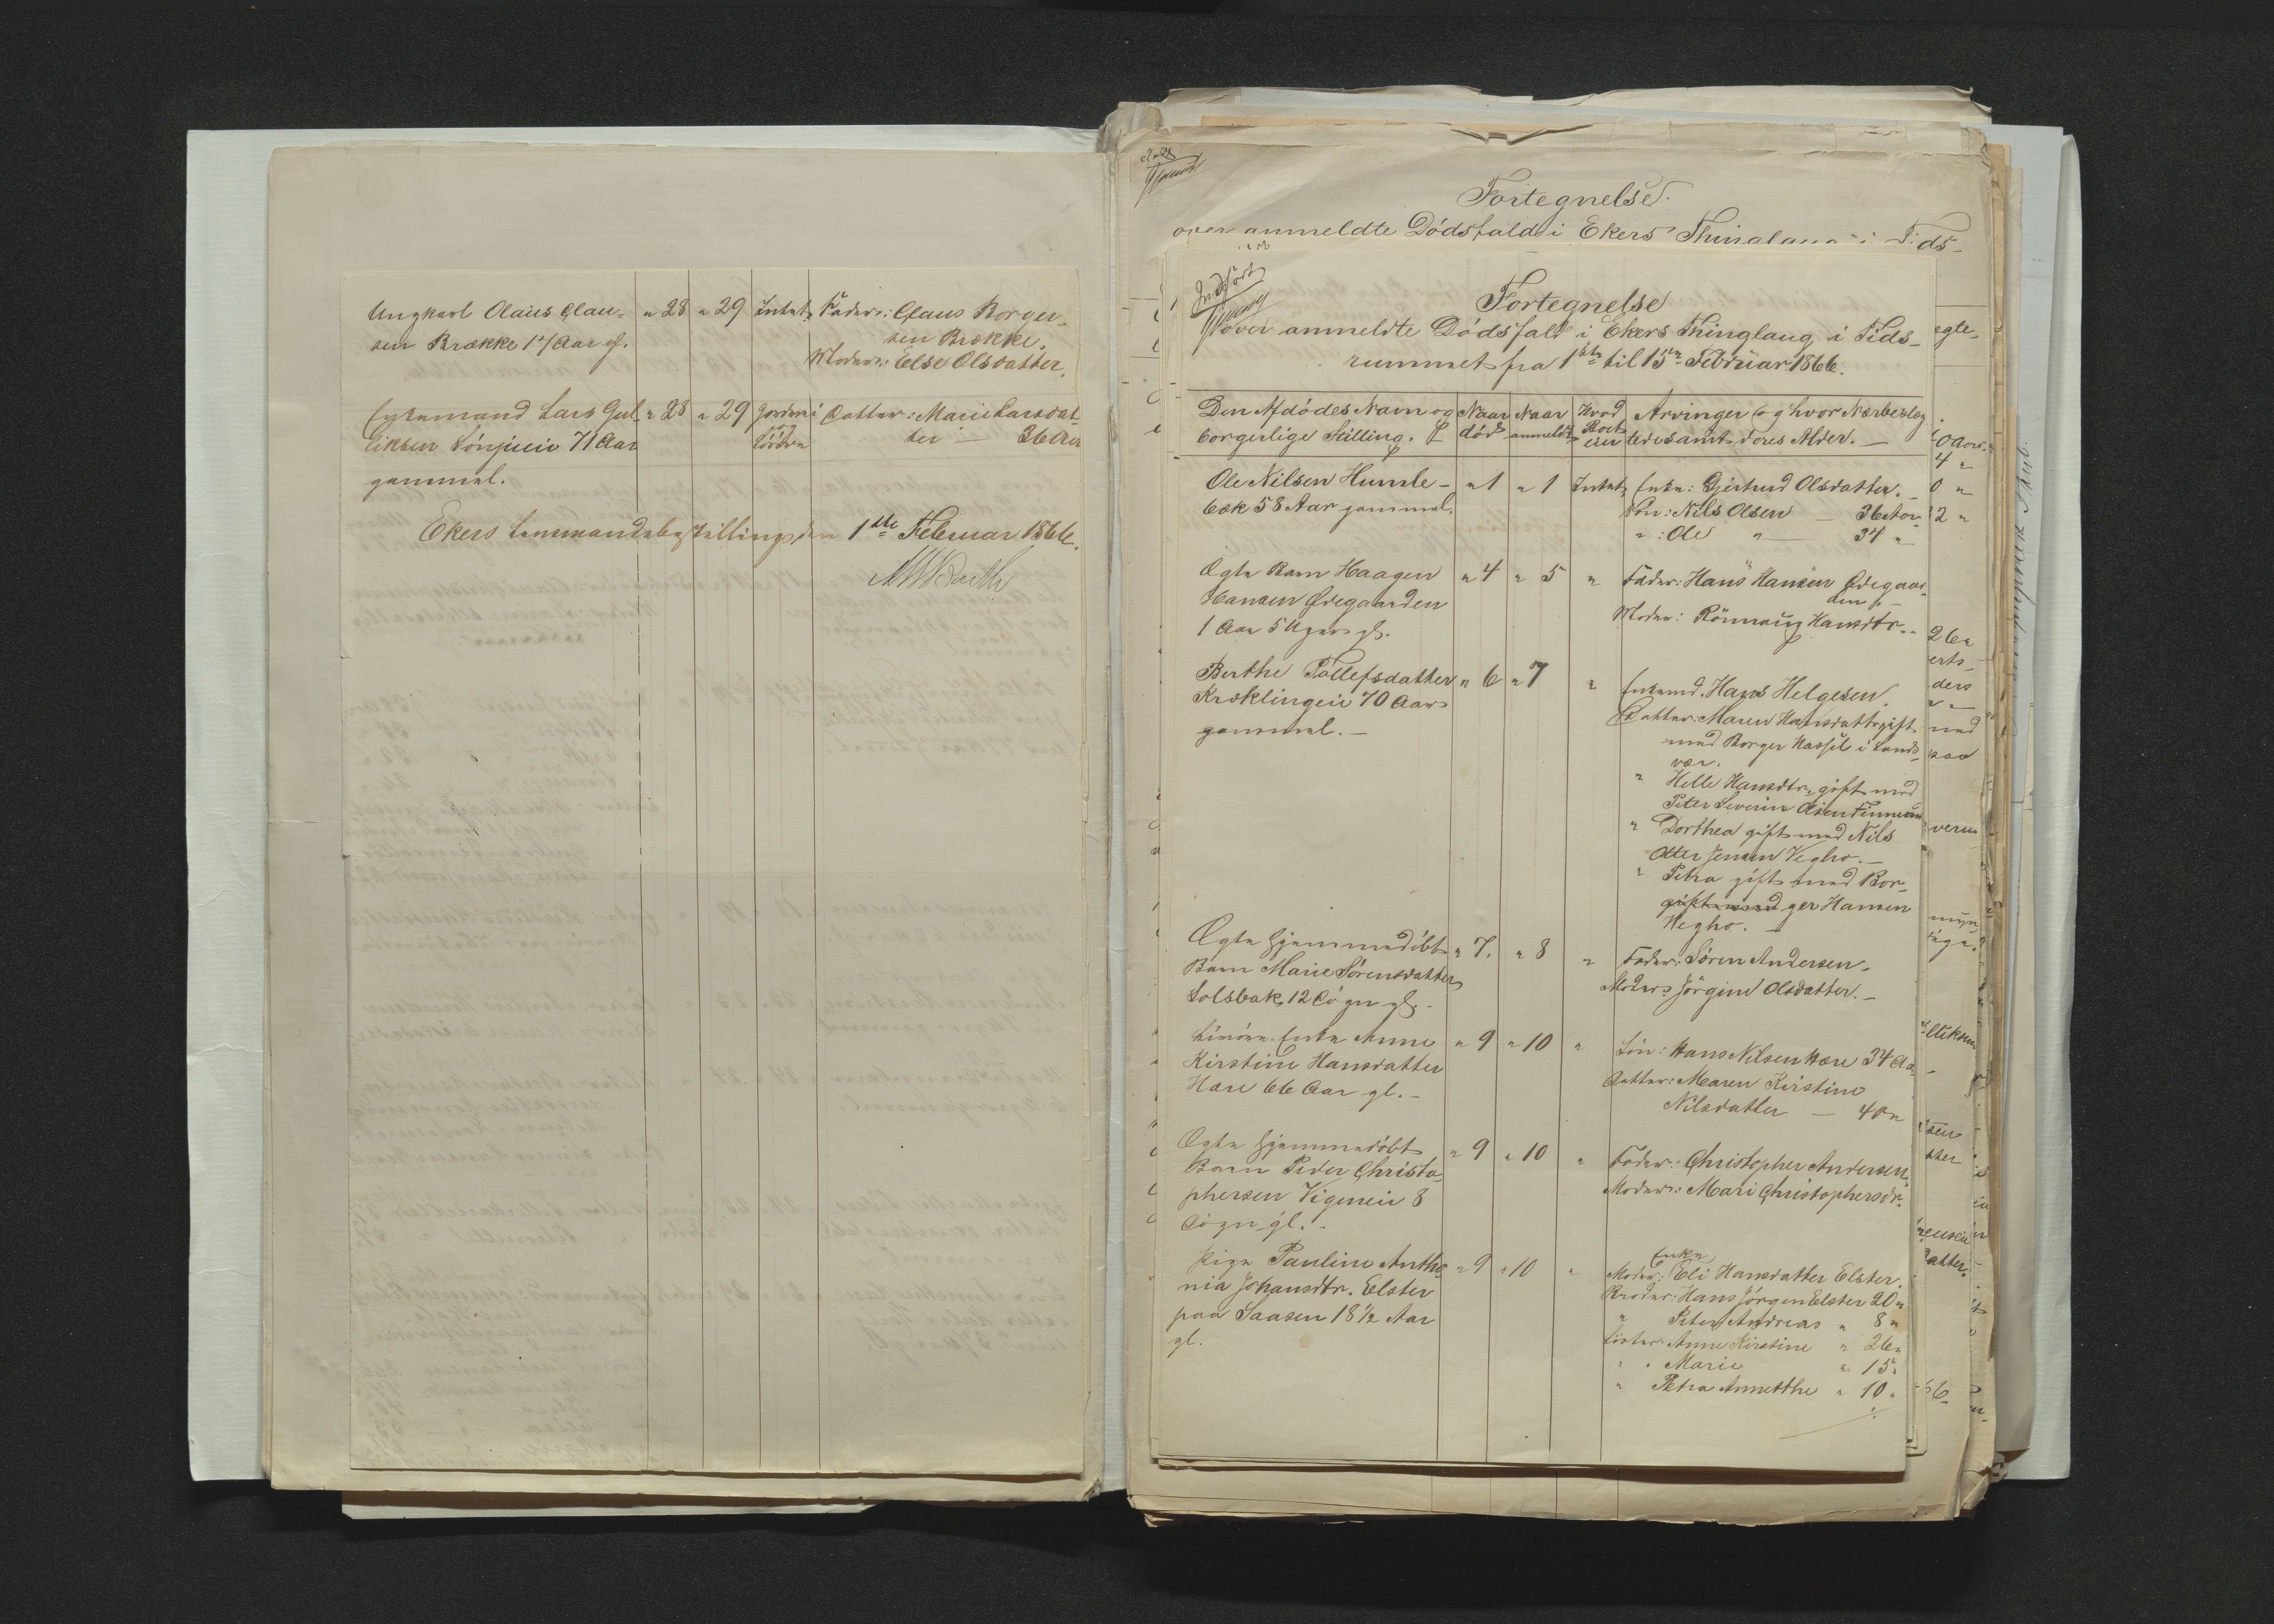 Ungkarl Olaus Clau- " 28 " 29 Intet Fader: Claus Borger-
sen Brække 17 Aar gl. sen Brække.
Moder: Else Olsdatter.
Enkemand Lars Gul- " 28 " 29 Jorden i Datter: Marie Larsdat-
liksen 71 Aar ter — 36 Aar
gammel.
Ekers Lensmandsbestilling den 1ste Februar 1866.
Fortegnelse
over anmeldte Dødsfald i Ekers Thinglaug i Tids-
Indført
Fortegnelse
over anmeldte Dødsfald i Ekers Thinglaug i Tids-
rummet fra 1ste til 15de Februar 1866.
Den Afdødes Navn og Naar Naar Hvad Arvinger og hvor Nærbeslæg
borgerlige Stilling. død anmeldt Boet eier tede samt deres Alder. —
Ole Nilsen Humle- " 1 " 1 Intet Enke: Gjertrud Olsdatter. -
bæk 58 Aar gammel. Søn: Nils Olsen — 36 Aar
" : Ole " — 34 "
Ægte Barn Haagen " 4 " 5 " Fader: Hans Hansen Ødegaar-
Hansen Ødegaarden den
1 Aar 5 Uger gl. Moder: Rönnaug Hansdtr. -
Berthe Tollefsdatter " 6 " 7 " Enkemd. Hans Helgesen
Kræklingen 70 Aar Datter: Maren Hansdatter gift
gammel. — med Borger Hassel i Sands-
vær.
" Helle Hansdtr. gift med
Peter Severin Olsen
" Dorthea gift med Nils
Otter Jensen Vegho. —
" Petra gift med Bor-
gift med ger Hansen
Vegho. —
Ægte hjemmedøbt " 7. " 8 " Fader: Søren Andersen.
Barn Marie Sørensdatter Moder: Jörgine Olsdatter. —
Solsbak, 12 Døgn gl. -
Enke Anne " 9 " 10 " Søn: Hans Nilsen Hære 34 Aa.
Kirstine Hansdatter Datter: Maren Kirstine
Hære 66 Aar gl. — Nilsdatter — 40 "
Ægte hjemmedøbt " 9 " 10 " Fader: Christopher Andersen,
Barn Peder Christo- Moder: Mari Christophersdr.
phersen Vigeneie 8
Døgn gl. -
Pige Pauline Antho- " 9 " 10 " Moder: Enke Eli Hansdatter Elster.
nia Johansdtr. Elster Broder: Hans Jörgen Elster 20 "
paa Saasen 18 ½ Aar " Peter Andreas " 8 "
gl. Söster: Anne Kirstine " 26 "
" " Marie " 15 "
" Petra Annetthe " 10 "